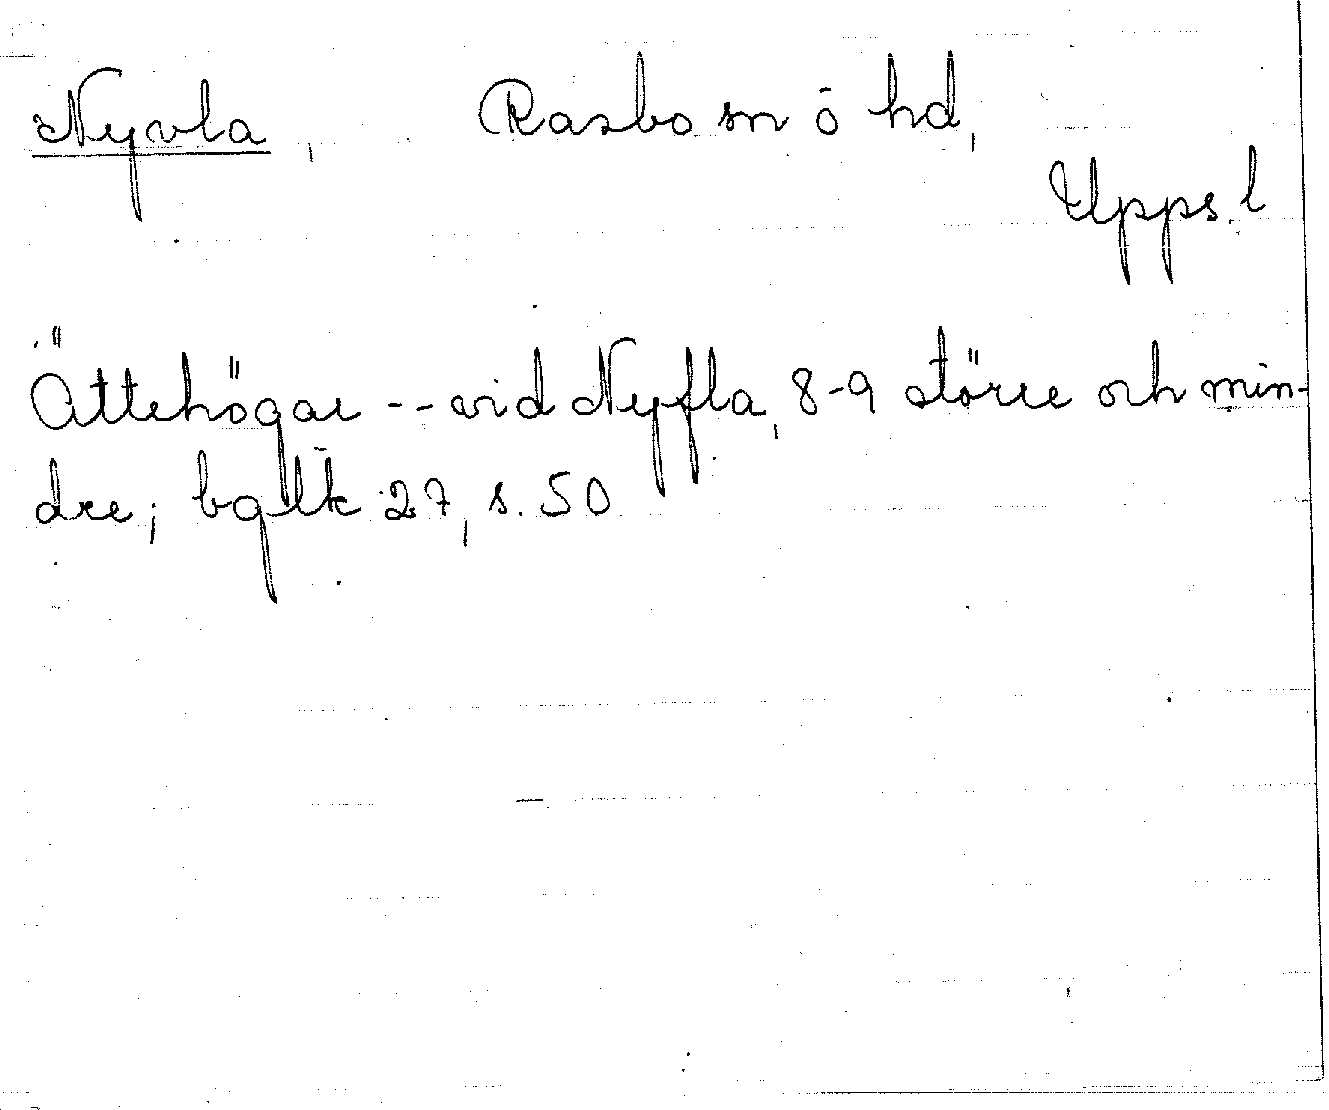 Nyvla, Rasbo sn o hd,
Upps. l
Ättehögar -- vid Nyfla, 8-9 större och min-
dre; bgltk 27, s. 50